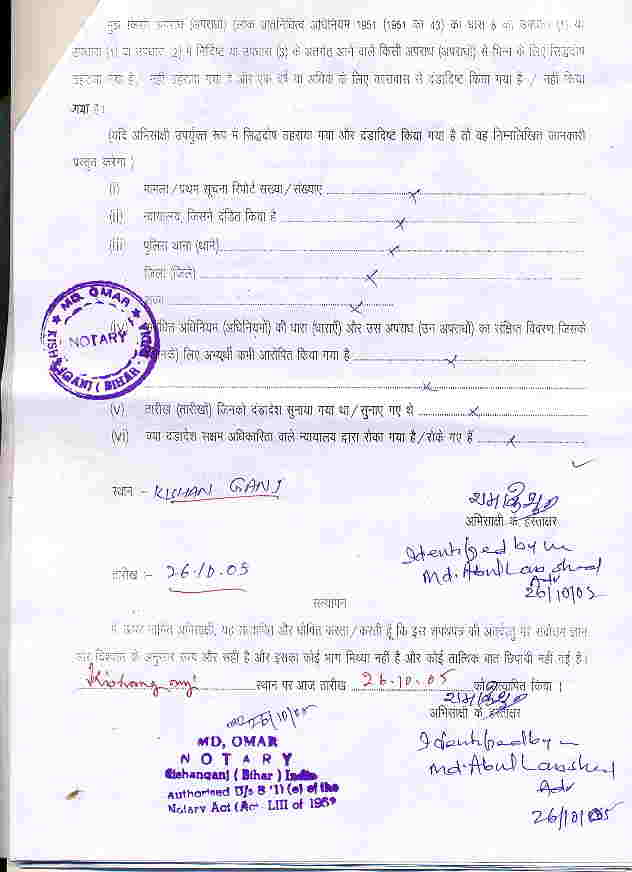 मुझे किसी अपराध (अपराधों) (लोक प्रतिनिधित्व अधिनियम 1951 (1951 का 43) की धारा 8 की उपधारा (1) या
उपधारा (1) या उपधारा (2) में निर्दिष्ट या उपधारा (3) के अंतर्गत आने वाले किसी अपराध (अपराधों) से भिन्न के लिए सिद्धदोष
ठहराया गया है, नहीं ठहराया गया है और एक वर्ष या अधिक के लिए कारावास से दंडादिष्ट किया गया है / नहीं किया
गया है।
(यदि अभिसाक्षी उपर्युक्त रूप में सिद्धदोष ठहराया गया और दंडादिष्ट किया गया है तो वह निम्नलिखित जानकारी
प्रस्तुत करेगा )
(i) मामला / प्रथम सूचना रिपोर्ट संख्या / संख्याएं ........ x
(ii) न्यायालय, जिसने दंडित किया है ........ x
(iii) पुलिस थाना (थाने) ........ x
जिला (जिले) ........ x
राज्य ........ x
(iv) अधिनियम (अधिनियमों) की धारा (धाराएँ) और उस अपराध (उन अपराधों) का संक्षिप्त विवरण जिसके
लिए अभ्यर्थी कभी आरोपित किया गया है ........ x
........ x
(v) तारीख (तारीखों) जिनको दंडादेश सुनाया गया था / सुनाए गए थे ........ x
(vi) क्या दंडादेश सक्षम अधिकारिता वाले न्यायालय द्वारा रोका गया है / रोके गए हैं ........ x
MD, OMAR
NOTARY
KISHANGANJ ( BIHAR )
स्थान :- KISHAN GANJ
अभिसाक्षी के हस्ताक्षर
Identified by m
Md. Abul
Adv
26/10/05
तारीख :- 26.10.05
सत्यापन
मैं ऊपर नामित अभिसाक्षी, यह सत्यापित और घोषित करता / करती हूँ कि इस शपथपत्र की अंतर्वस्तु मेरे सर्वोत्तम ज्ञान
और विश्वास के अनुसार सत्य और सही है और इसका कोई भाग मिथ्या नहीं है और कोई तात्विक बात छिपायी नहीं गई है।
Kishanganj स्थान पर आज तारीख 26.10.05 को सत्यापित किया ।
अभिसाक्षी के हस्ताक्षर
26/10/05
MD, OMAR
NOTARY
Kishanganj ( Bihar ) India
Authorised U/s 8 '1) (e) of the
Notary Act (Act LIII of 1952
Identified by m
Md. Abul
Adv
26/10/05